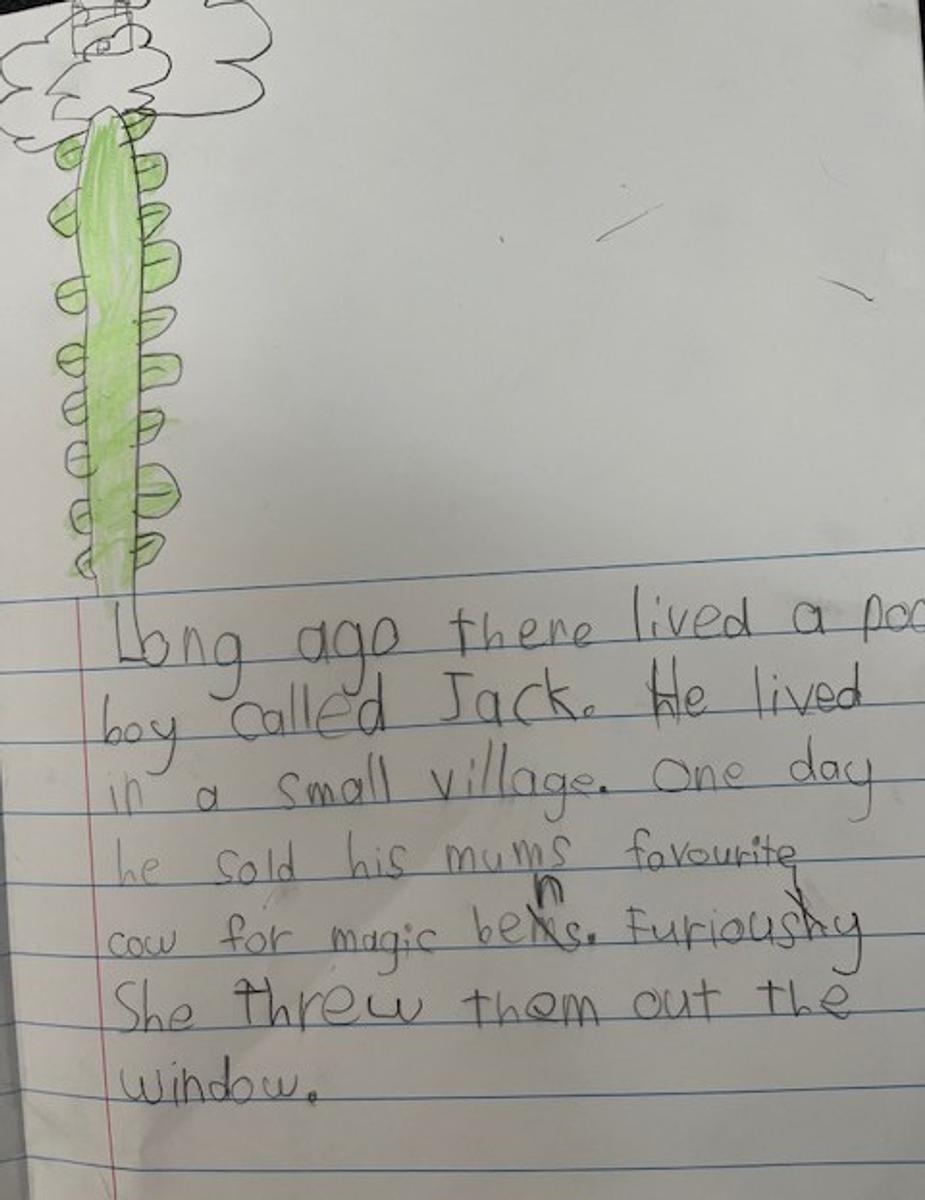 Long ago there lived a
boy called Jack. He lived
in a small village. One day
he sold his mums favourite
cow for magic bens. Furiously
She threw them out the
window.